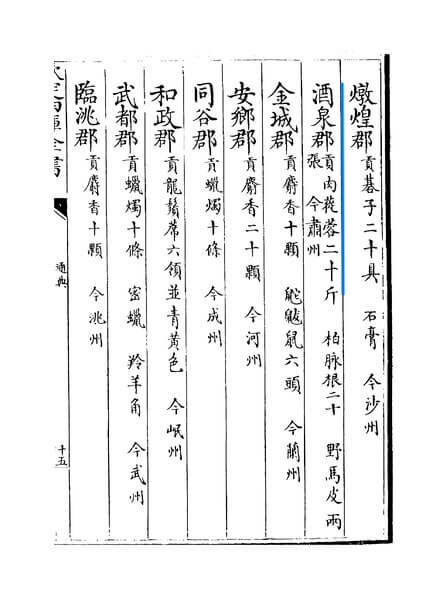 燉煌郡貢碁子二十具 石膏 今沙州
酒泉郡貢肉蓯蓉二十斤 柏脉根二十 野馬皮兩
張 今肅州
金城郡貢麝香十顆 鼧鼥鼠六頭 今蘭州
安鄉郡貢麝香二十顆 今河州
同谷郡貢蠟燭十條 今成州
和政郡貢龍鬚席六領並青黃色 今岷州
武都郡貢蠟燭十條 密蠟 羚羊角 今武州
臨洮郡貢麝香十顆 今洮州
欽定四庫全書 通典 十五